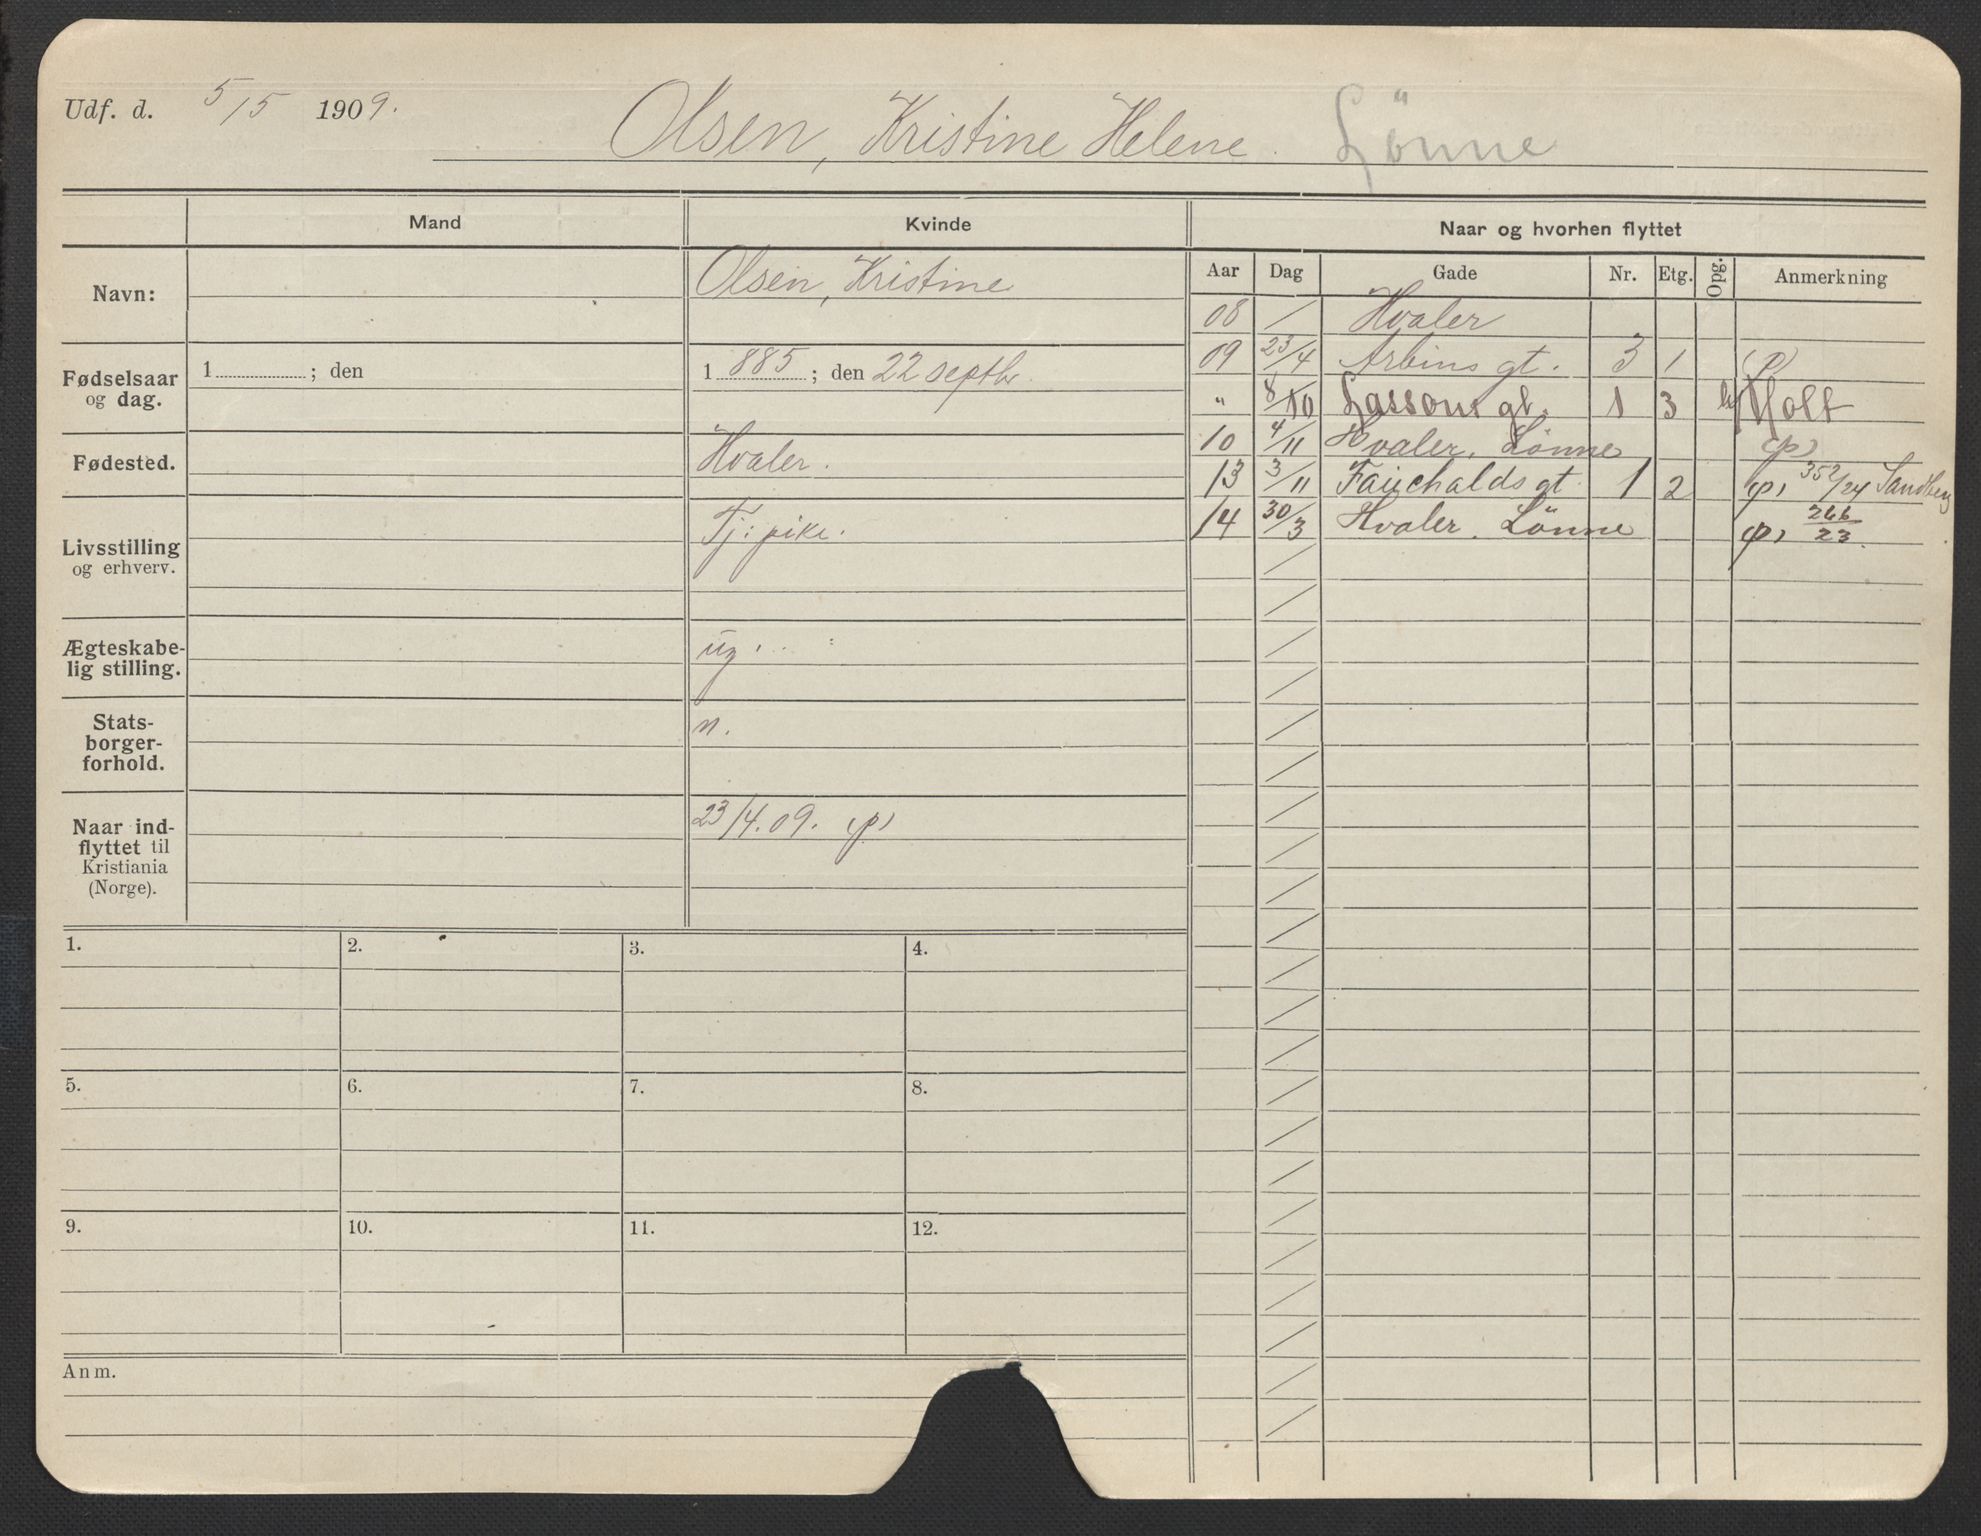 Udf. d. 5/5 1909. Olsen, Kristine Helene. Lönne
Mand Kvinde Naar og hvorhen flyttet
Aar Dag Gade Nr. Etg. Opg. Anmerkning
Navn: Olsen, Kristine
Fødselsaar
og dag.
1 ; den
1 885 ; den 22 septbr.
Fødested. Hvaler.
Livsstilling
og erhverv.
Tj: pike.
Ægteskabe-
lig stilling.
ug.
Stats-
borger-
forhold.
n.
Naar ind-
flyttet til
Kristiania
(Norge).
23/4.09. (p)
08 / Hvaler
09 23/4 Arbins gt. 3 1 (p)
" 8/10 Lassons gt. 1 3 Holt
10 4/11 Hvaler. Lønne (p)
13 3/11 Fauchalds gt. 1 2 (p) 352/24 Sandberg
14 30/3 Hvaler. Lönne (p) 266/23.
1. 2. 3. 4.
5. 6. 7. 8.
9. 10. 11. 12.
Anm.